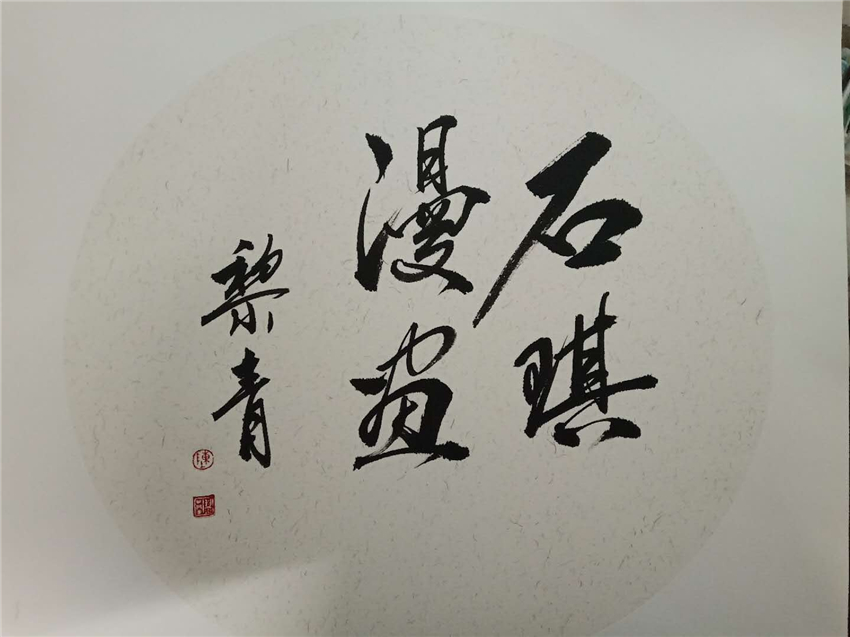 石琪
漫画
黎青
陳